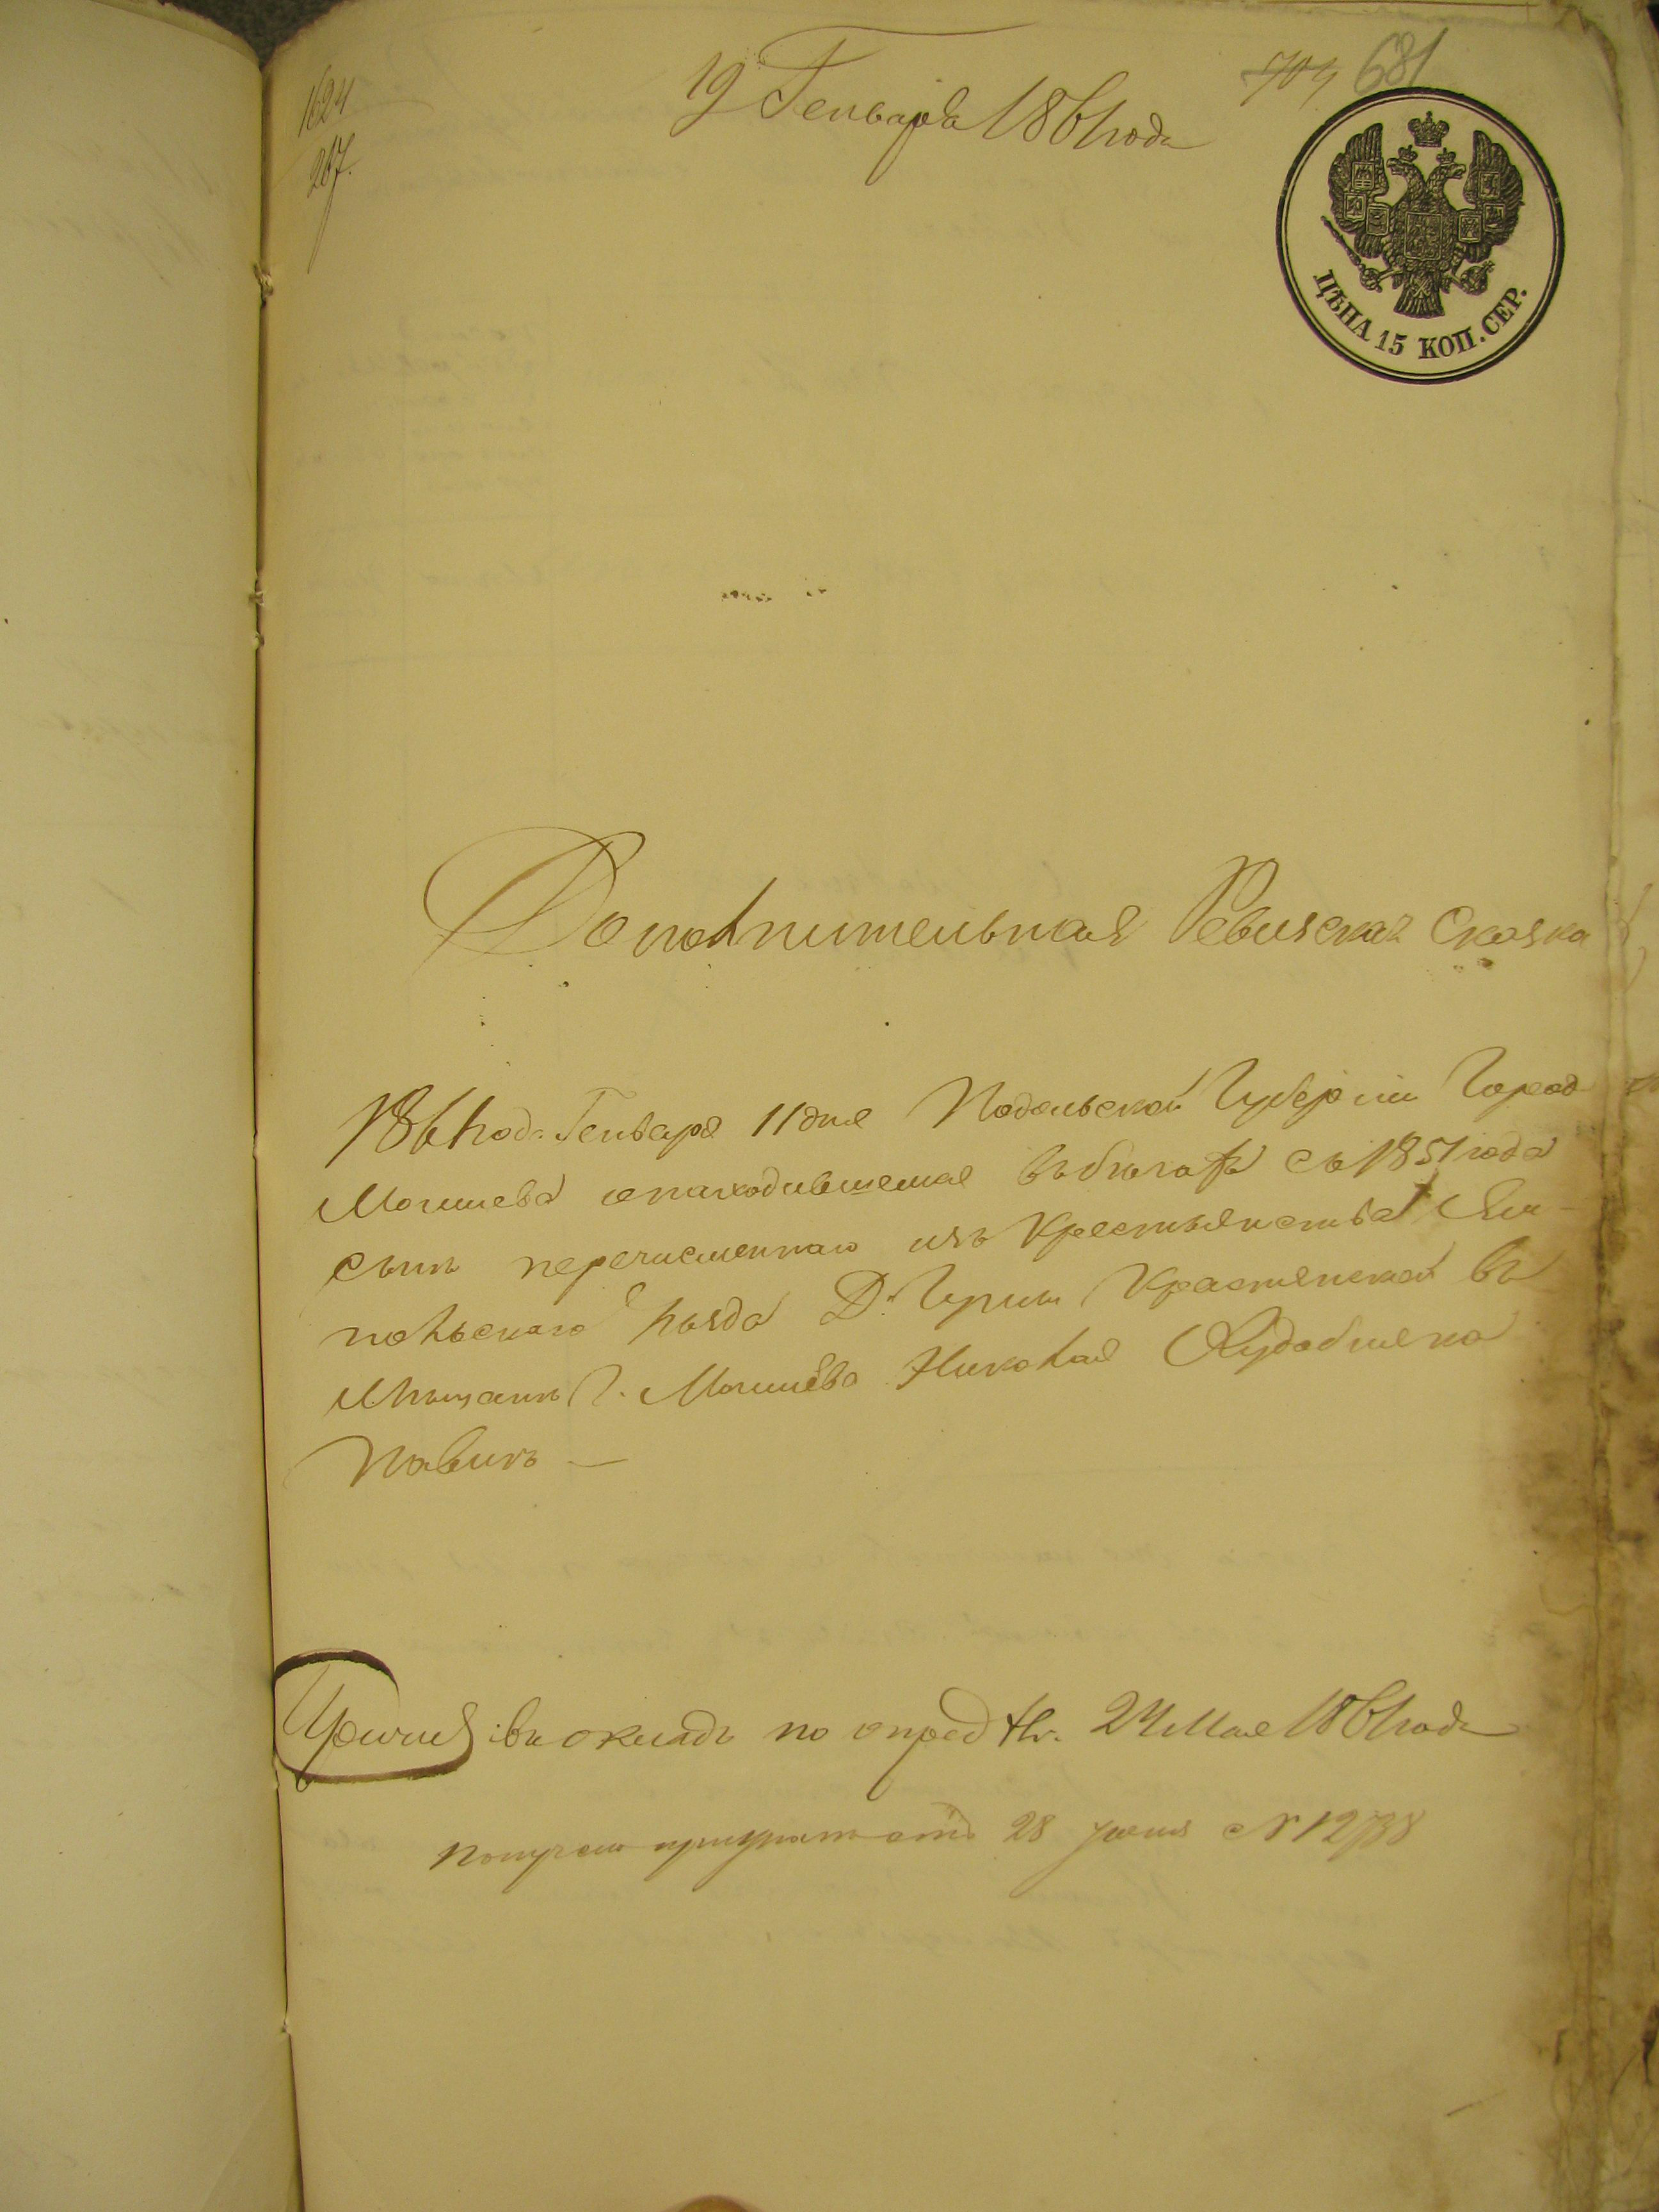 1624
267.
19 Генваря 1861 года
704 681
ЦѢНА 15 КОП. СЕР.
Дополнительная Ревизская Сказка
1861 года Генваря 11 дня Подольской Губерніи Город
Могилева о находившемся въ бѣгахъ съ 1851 года
сынъ перечисленнаго изъ Крестьянства Ям-
польскаго уѣзда Д. въ
Мѣщанъ Г. Могилева Николая
Павилъ —
въ окладъ по опред 24 Мая 1861 года
28 Іюня № 12738